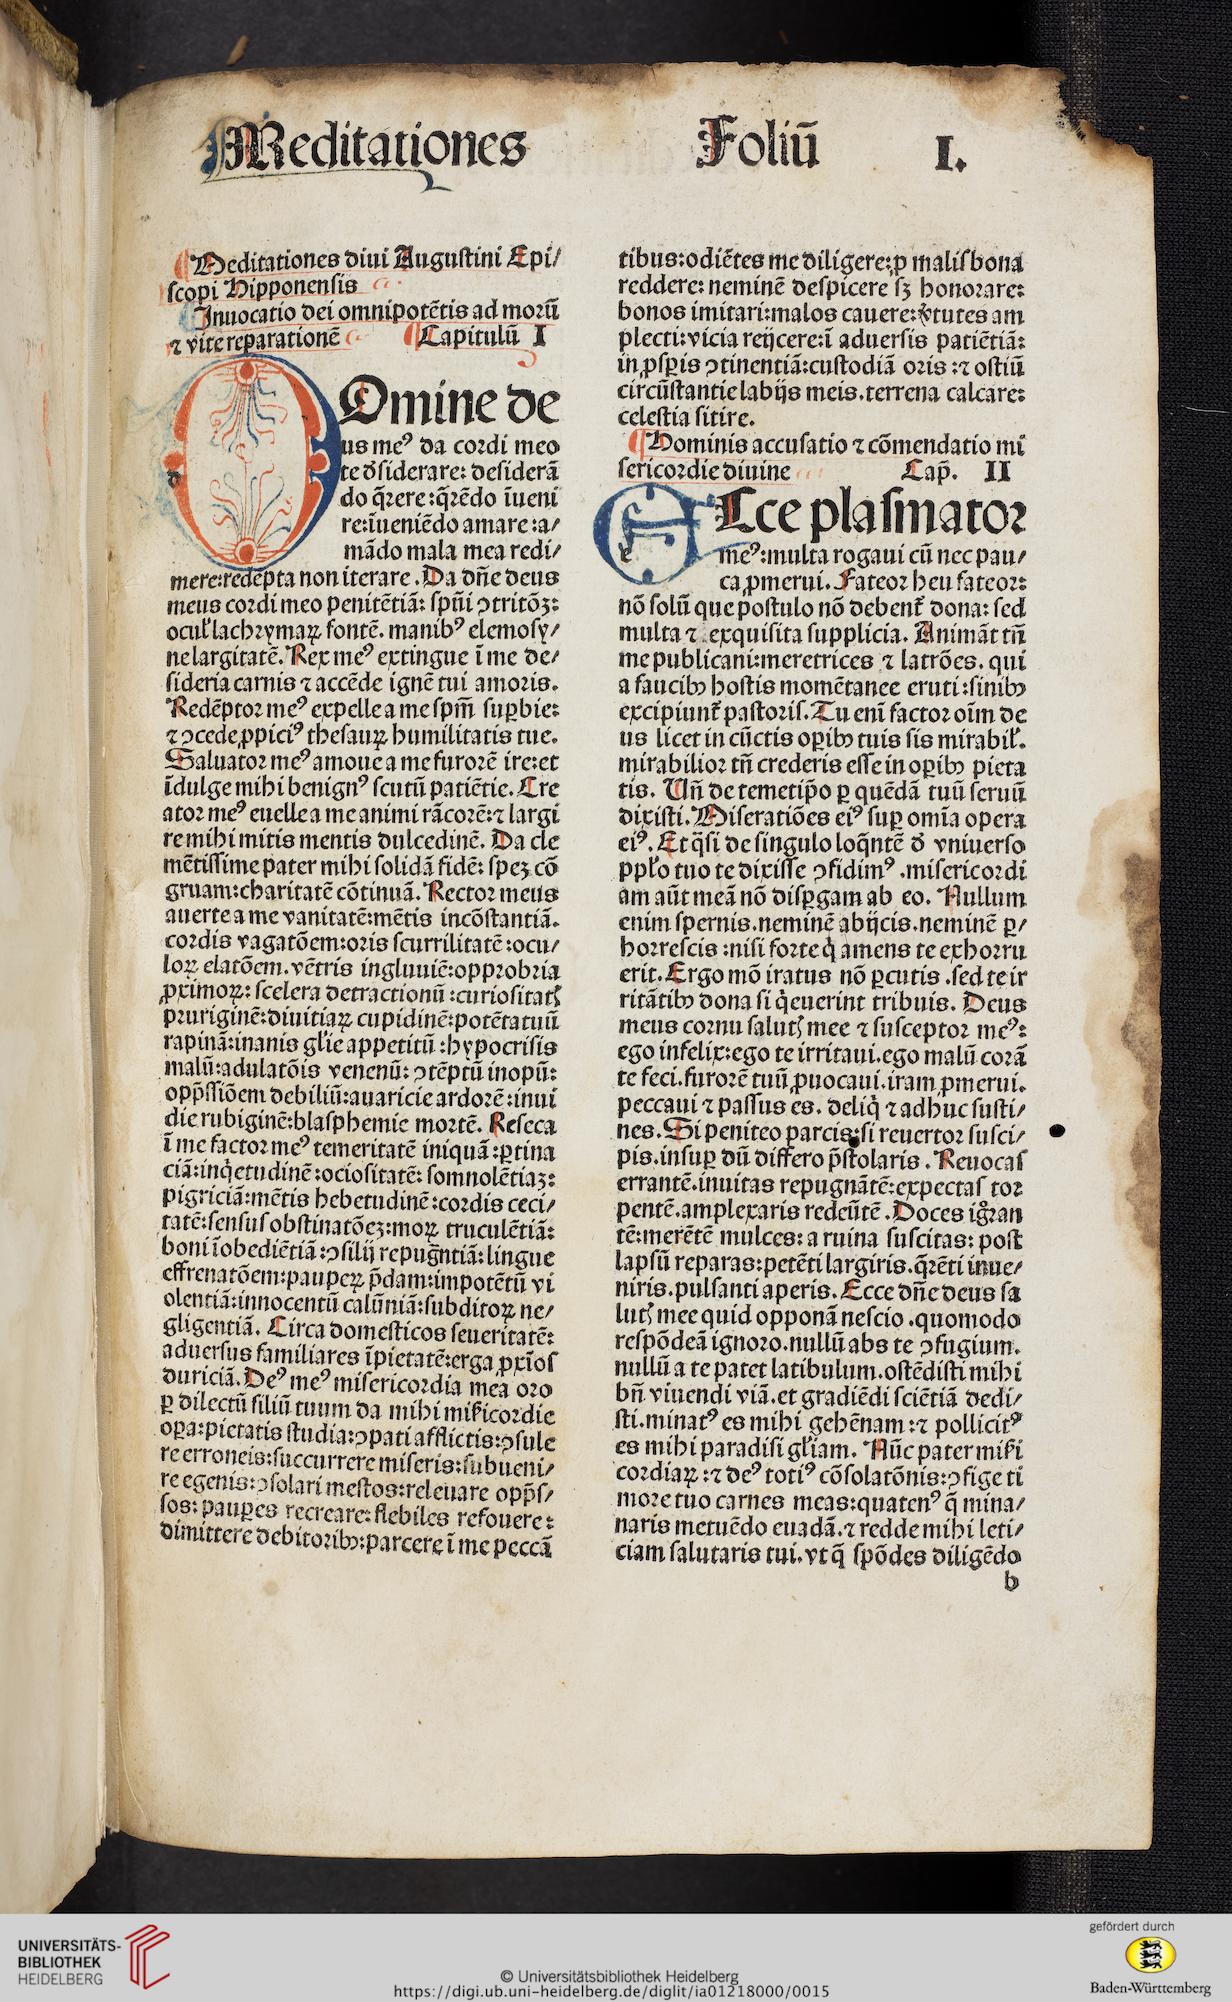 Meditationes Foliū I.
Meditationes diui Augustini Epi/
scopi Hipponensis
Inuocatio dei omnipotētis ad morū
⁊ vite reparationē Capitulū I
Domine de
us meꝰ da cordi meo
te d̄siderare: desiderā
do q̄rere: q̄rēdo īueni
re: īueniēdo amare: a/
mādo mala mea redi/
mere: redēpta non iterare. Da dn̄e deus
meus cordi meo penitētiā: spūi ↄtritōꝫ:
ocul̕ lachrymaꝝ fontē. manibꝰ elemosy/
ne largitatē. Rex meꝰ extingue ī me de/
sideria carnis ⁊ accēde ignē tui amoris.
Redēptor meꝰ expelle a me spm̄ suꝑbie:
⁊ ↄcede ꝓpiciꝰ thesauꝝ humilitatis tue.
Saluator meꝰ amoue a me furorē ire: et
īdulge mihi benignꝰ scutū patiētie. Cre
ator meꝰ euelle a me animi rācorē: ⁊ largi
re mihi mitis mentis dulcedinē. Da cle
mētissime pater mihi solidā fidē: speꝫ cō
gruam: charitatē cōtinuā. Rector meus
auerte a me vanitatē: mētis incōstantiā.
cordis vagatōem: oris scurrilitatē: ocu/
loꝝ elatōem. vētris ingluuiē: opprobria
ꝓximoꝝ: scelera detractionū: curiositatꝭ
pruriginē: diuitiaꝝ cupidinē: potētatuū
rapinā: inanis gl̄ie appetitū: hypocrisis
malū: adulatōis venenū: ↄtēptū inopū:
opp̄ssiōem debiliū: auaricie ardorē: inui
die rubiginē: blasphemie mortē. Reseca
ī me factor meꝰ temeritatē iniquā: ꝑtina
ciā: inq̇etudinē: ociositatē: somnolētiaꝫ:
pigriciā: mētis hebetudinē: cordis ceci/
tatē: sensus obstinatōeꝫ: moꝝ truculētiā:
boni īobediētiā: ↄsilij repugn̄tiā: lingue
effrenatōem: pauꝑeꝝ p̄dam: impotētū vi
olentiā: innocentū calūniā: subditoꝝ ne/
gligentiā. Circa domesticos seueritatē:
aduersus familiares īpietatē: erga ꝓxīos
duriciā. Deꝰ meꝰ misericordia mea oro
ꝑ dilectū filiū tuum da mihi mīs̄icordie
oꝑa: pietatis studia: ↄpati afflictis: ↄsule
re erroneis: succurrere miseris: subueni/
re egenis: ↄsolari mestos: releuare opp̄s/
sos: pauꝑes recreare: flebiles refouere:
dimittere debitoribꝫ: parcere ī me peccā
tibus: odiētes me diligere: ꝓ malis bona
reddere: neminē despicere sꝫ honorare:
bonos imitari: malos cauere: v̄tutes am
plecti: vicia reijcere: ī aduersis patiētiā:
in ꝓsꝑis ↄtinentiā: custodiā oris: ⁊ ostiū
circūstantie labijs meis. terrena calcare:
celestia sitire.
Hominis accusatio ⁊ cōmendatio mi
sericordie diuine Cap̄. II
ECce plasmator
meꝰ: multa rogaui cū nec pau/
ca ꝓmerui. Fateor heu fateor:
nō solū que postulo nō debent̄ dona: sed
multa ⁊ exquisita supplicia. Animāt tn̄
me publicani: meretrices ⁊ latrōes. qui
a faucibꝫ hostis momētanee eruti: sinibꝫ
excipiunt̄ pastoris. Tu enī factor oīm de
us licet in cūctis oꝑibꝫ tuis sis mirabil̕.
mirabilior tn̄ crederis esse in oꝑibꝫ pieta
tis. Un̄ de temetip̄o ꝑ quēdā tuū seruū
dixisti. Miseratiōes eiꝰ suꝑ omīa opera
eiꝰ. Et q̄si de singulo loq̄ntē d̄ vniuerso
ppl̕o tuo te dixisse ↄfidimꝰ. misericordi
am aūt meā nō disꝑgam ab eo. Nullum
enim spernis. neminē abijcis. neminē ꝑ/
horrescis: nisi forte q̇ amens te exhorru
erit. Ergo mō iratus nō ꝑcutis. sed te ir
ritātibꝫ dona si q̇euerint tribuis. Deus
meus cornu salutꝭ mee ⁊ susceptor meꝰ:
ego infelix: ego te irritaui. ego malū corā
te feci. furorē tuū ꝓuocaui. iram ꝓmerui.
peccaui ⁊ passus es. deliq̇ ⁊ adhuc susti/
nes. Si peniteo parcis: si reuertor susci/
pis. insuꝑ dū differo p̄stolaris. Reuocas
errantē. inuitas repugnātē: expectas tor
pentē. amplexaris redeūtē. Doces igr̄an
tē: merētē mulces: a ruina suscitas: post
lapsū reparas: petēti largiris. q̄rēti inue/
niris. pulsanti aperis. Ecce dn̄e deus sa
lutꝭ mee quid opponā nescio. quomodo
respōdeā ignoro. nullū abs te ↄfugium.
nullū a te patet latibulum. ostēdisti mihi
bn̄ viuendi viā. et gradiēdi sciētiā dedi/
sti. minatꝰ es mihi gehēnam: ⁊ pollicitꝰ
es mihi paradisi gl̄iam. Nūc pater mīs̄i
cordiaꝝ: ⁊ deꝰ totiꝰ cōsolatōnis: ↄfige ti
more tuo carnes meas: quatenꝰ q̄ mina/
naris metuēdo euadā. ⁊ redde mihi leti/
ciam salutaris tui. vt q̄ spōdes diligēdo
b
UNIVERSITÄTS-
BIBLIOTHEK
HEIDELBERG
© Universitätsbibliothek Heidelberg
https://digi.ub.uni-heidelberg.de/diglit/ia01218000/0015
gefördert durch
Baden-Württemberg